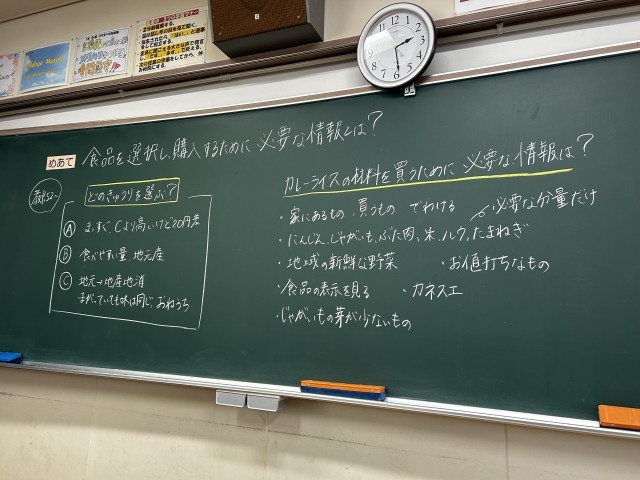 めあて 食品を選択し、購入するために必要な情報とは？
どのきゅうりを選ぶ？
A まっすぐ、Cより高いけど20円差
B 食べやすい量、地元産
C 地元→地産地消
まがっていても味は同じ、おねうち
カレーライスの材料を買うために必要な情報は？
・家にあるもの、買うもの でわける 必要な分量だけ
・にんじん、じゃがいも、ぶた肉、米、ルウ、たまねぎ
・地域の新鮮な野菜 ・お値打ちなもの
・食品の表示を見る ・カネスエ
・じゃがいもの芽が少ないもの